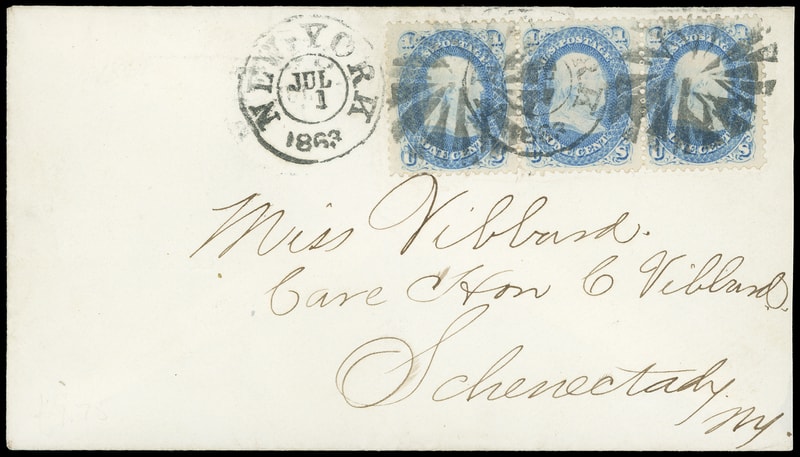 NEW-YORK
JUL
1
1863
U.S. POSTAGE
ONE CENT
U.S. POSTAGE
ONE CENT
U.S. POSTAGE
ONE CENT
Miss Vibbard.
Care Hon C Vibbard.
Schenectady
NY.